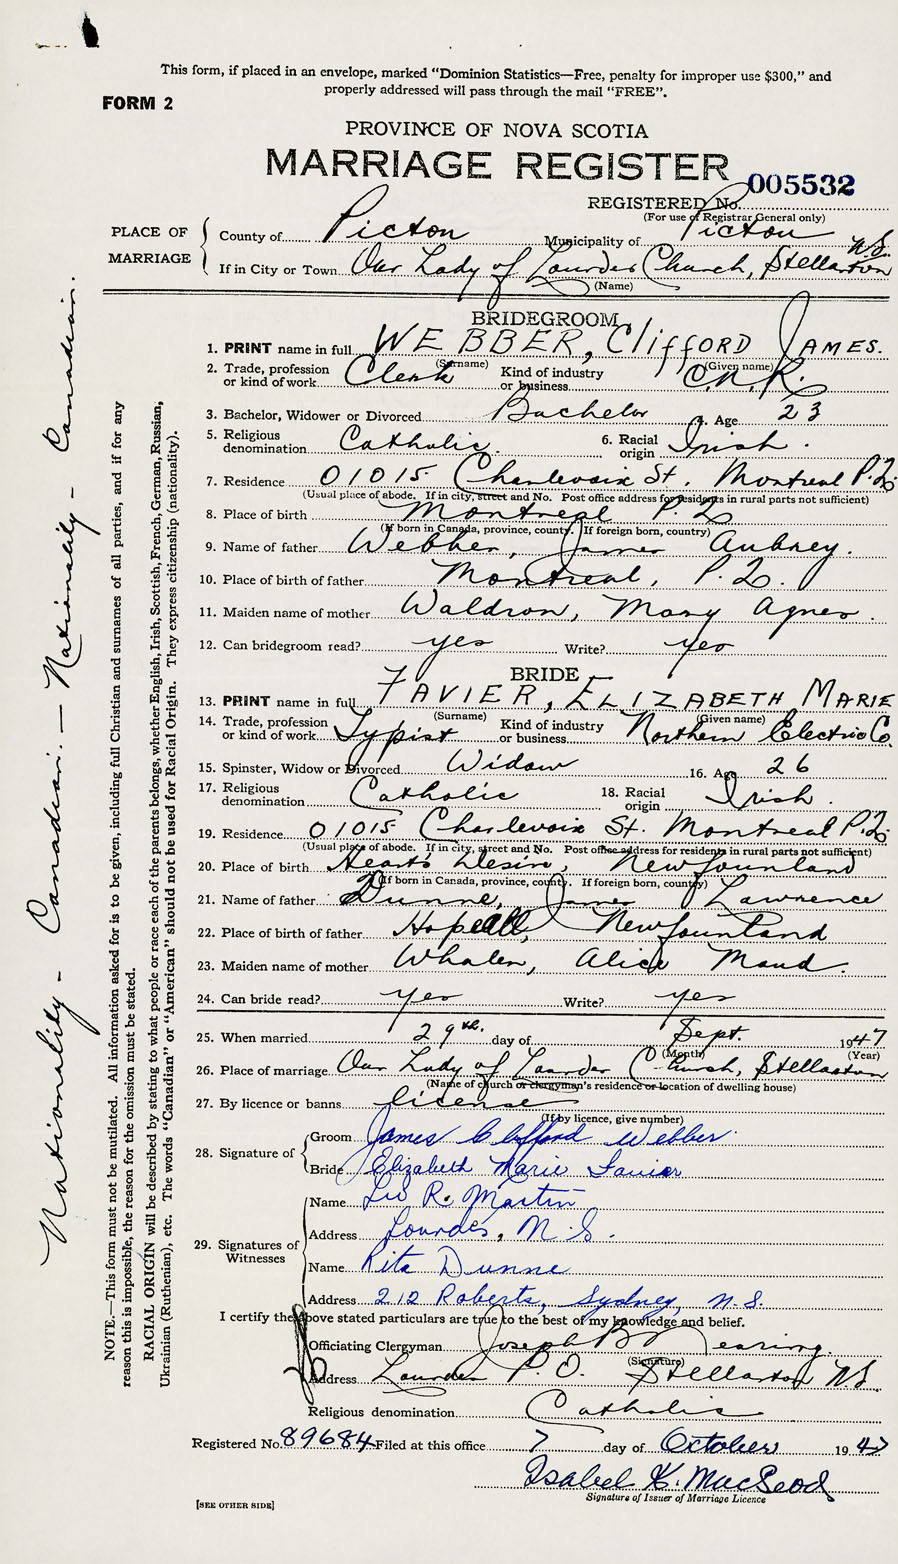 This form, if placed in an envelope, marked "Dominion Statistics—Free, penalty for improper use $300," and
properly addressed will pass through the mail "FREE".
FORM 2
PROVINCE OF NOVA SCOTIA
MARRIAGE REGISTER
005532
REGISTERED No.
(For use of Registrar General only)
PLACE OF MARRIAGE
County of Picton Municipality of Picton
If in City or Town Our Lady of Lourdes Church, Stellarton N.S.
(Name)
BRIDEGROOM
1. PRINT name in full WEBBER, CliffORD JAMES.
(Surname) (Given name)
2. Trade, profession or kind of work Clerk Kind of industry or business C.N.R.
3. Bachelor, Widower or Divorced Bachelor 4. Age 23
5. Religious denomination Catholic. 6. Racial origin Irish.
7. Residence 01015 Charlevoix St. Montreal P.Q.
(Usual place of abode. If in city, street and No. Post office address for residents in rural parts not sufficient)
8. Place of birth Montreal P.Q.
(If born in Canada, province, county. If foreign born, country)
9. Name of father Webber, James Aubrey.
10. Place of birth of father Montreal, P.Q.
11. Maiden name of mother Waldron, Mary Agnes.
12. Can bridegroom read? yes Write? yes
BRIDE
13. PRINT name in full FAVIER, ELIZABETH MARIE
(Surname) (Given name)
14. Trade, profession or kind of work Typist Kind of industry or business Northern Electric Co.
15. Spinster, Widow or Divorced Widow 16. Age 26
17. Religious denomination Catholic 18. Racial origin Irish.
19. Residence 01015 Charlevoix St. Montreal P.Q.
(Usual place of abode. If in city, street and No. Post office address for residents in rural parts not sufficient)
20. Place of birth Heart's Desire, Newfounland
(If born in Canada, province, county. If foreign born, country)
21. Name of father Dunne, James Lawrence
22. Place of birth of father Hopeall, Newfountland
23. Maiden name of mother Whalen, Alice Maud.
24. Can bride read? yes Write? yes
25. When married 29th. day of Sept. 1947
(Month) (Year)
26. Place of marriage Our Lady of Lourdes Church, Stellarton
(Name of church or clergyman's residence or location of dwelling house)
27. By licence or banns license
(If by licence, give number)
28. Signature of
Groom James Clifford Webber
Bride Elizabeth Marie Favier
29. Signatures of Witnesses
Name R. Martin
Address Lourdes, N.S.
Name Rita Dunne
Address 212 Roberts, Sydney, N.S.
I certify the above stated particulars are true to the best of my knowledge and belief.
Officiating Clergyman Joseph B
(Signature)
Address Lourdes P.O. Stellarton N.S.
Religious denomination Catholic
Registered No. 89684 Filed at this office 7 day of October 1947
Isabel K. MacLeod
Signature of Issuer of Marriage Licence
[SEE OTHER SIDE]
NOTE.—This form must not be mutilated. All information asked for is to be given, including full Christian and surnames of all parties, and if for any
reason this is impossible, the reason for the omission must be stated.
RACIAL ORIGIN will be described by stating to what people or race each of the parents belongs, whether English, Irish, Scottish, French, German, Russian,
Ukrainian (Ruthenian), etc. The words "Canadian" or "American" should not be used for Racial Origin. They express citizenship (nationality).
Nationality - Canadian. — Nationality - Canadian.